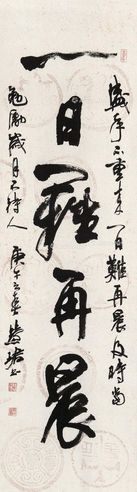 一日難再晨
盛年不重來一日難再晨及時當
勉勵歲月不待人
庚午